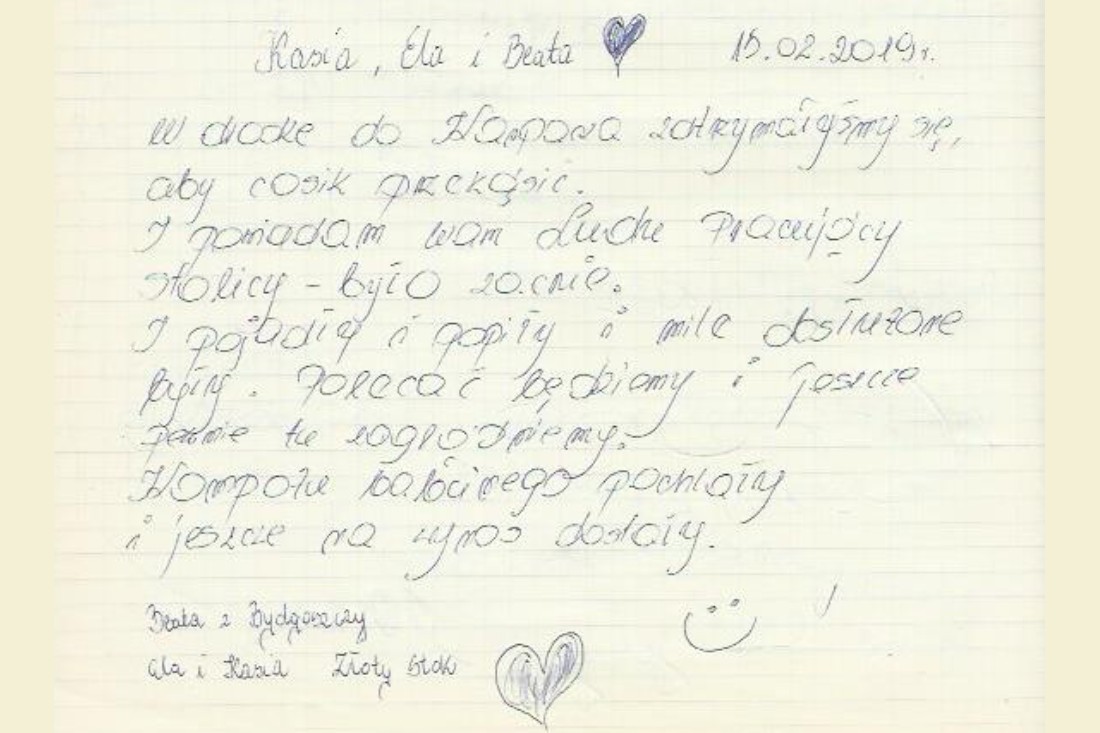 Kasia, Ela i Beata 15.02.2019r.
W drodze do zatrzymałyśmy się,
aby cosik przekąsić.
I powiadam wam Ludzie Pracujący
stolicy - było zacnie.
I pojadły i popiły i mile obsłużone
były. Polecać będziemy i jeszcze
pewnie tu zagrodniemy.
Kompotu babcinego pochlały
i jeszcze na wynos dostały.
Beata z Bydgoszczy
Ela i Kasia Złoty Stok